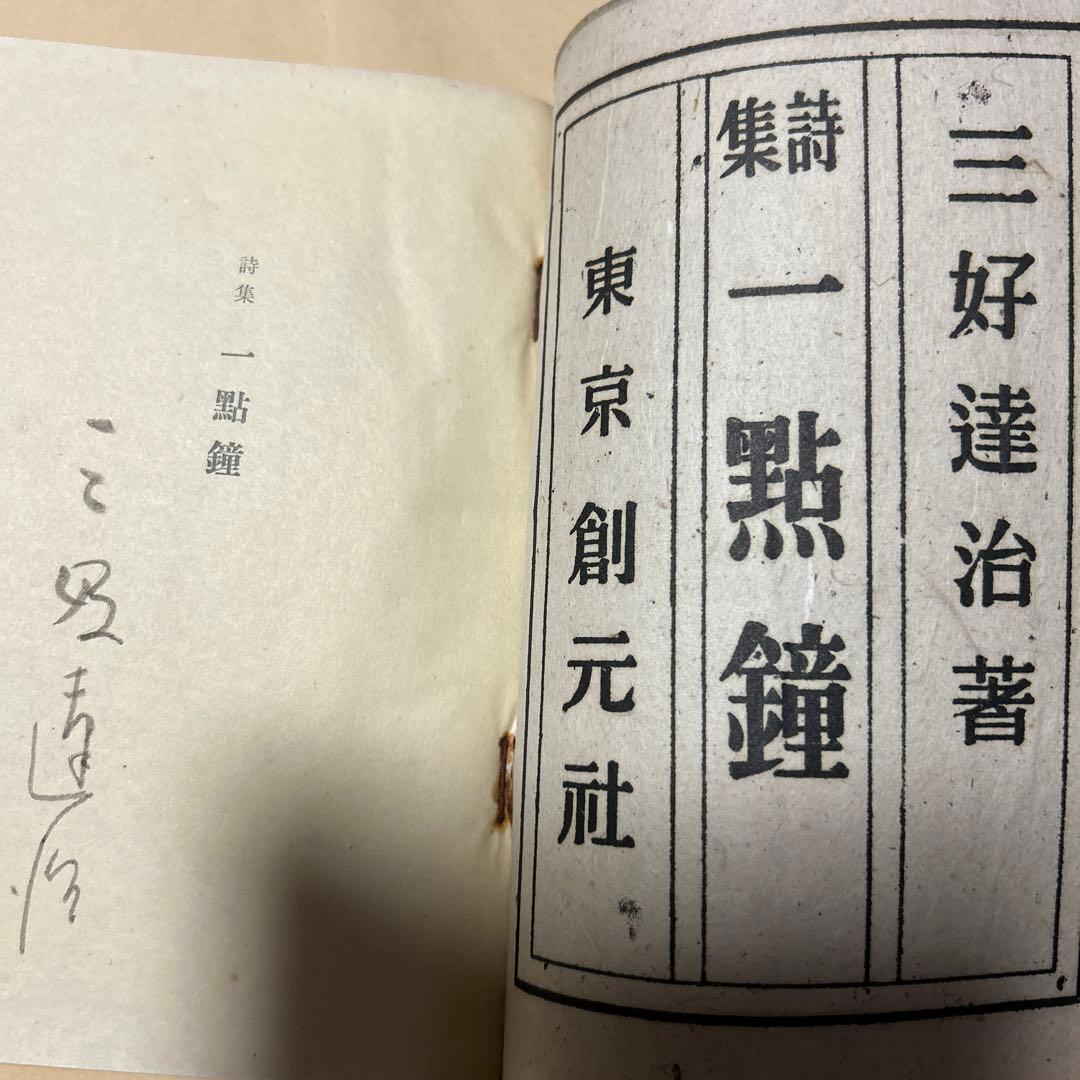 三好達治著
詩集 一點鐘
東京創元社
詩集 一點鐘
三好達治